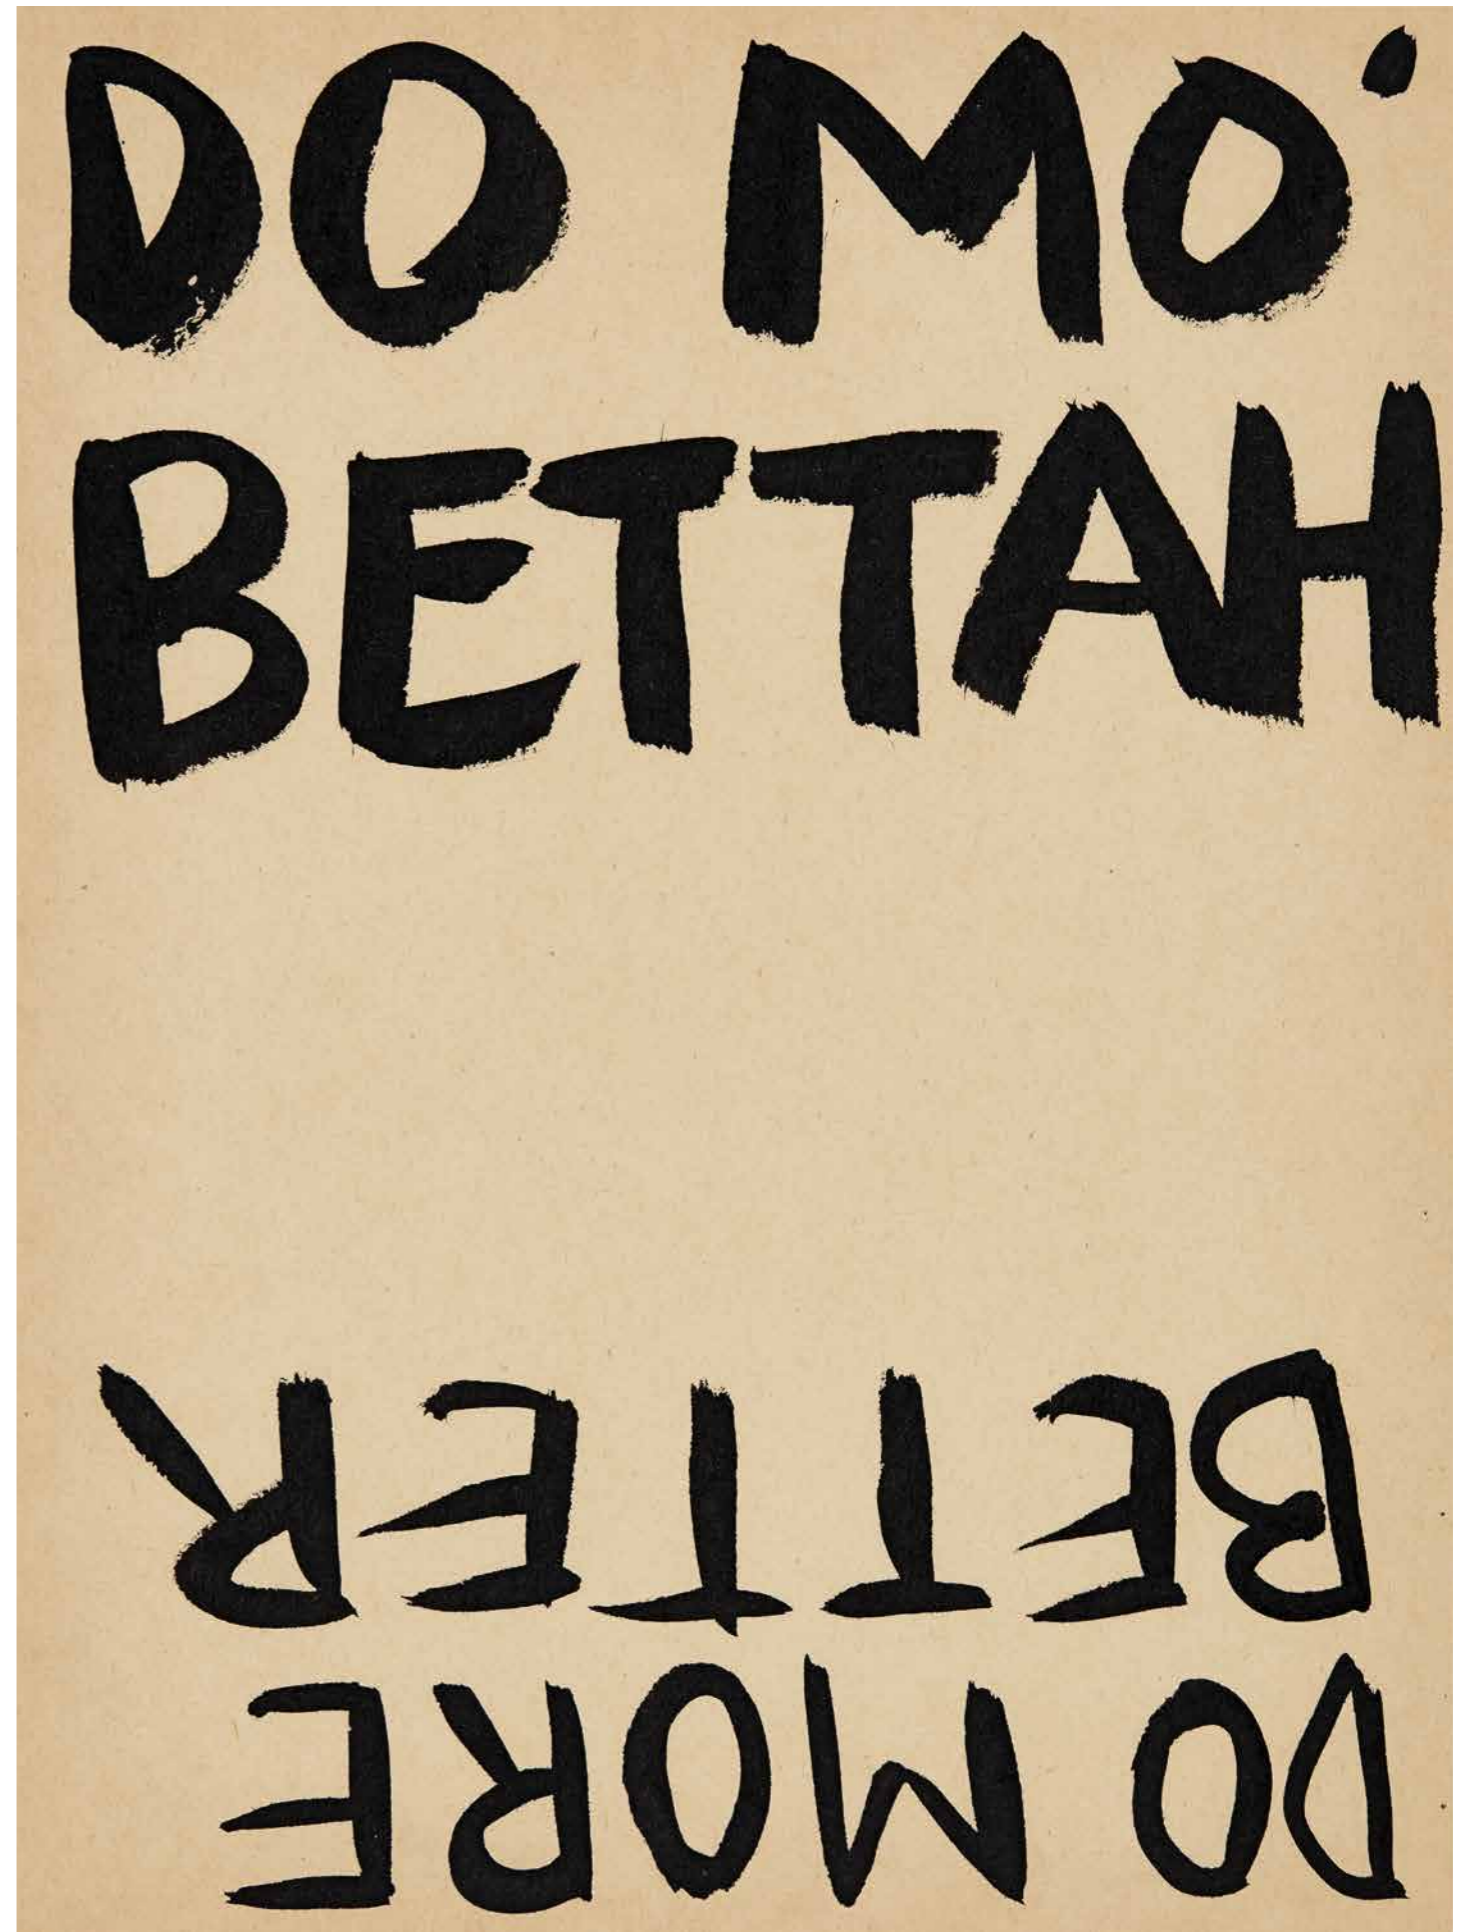 DO MO'
BETTAH
DO MORE
BETTER